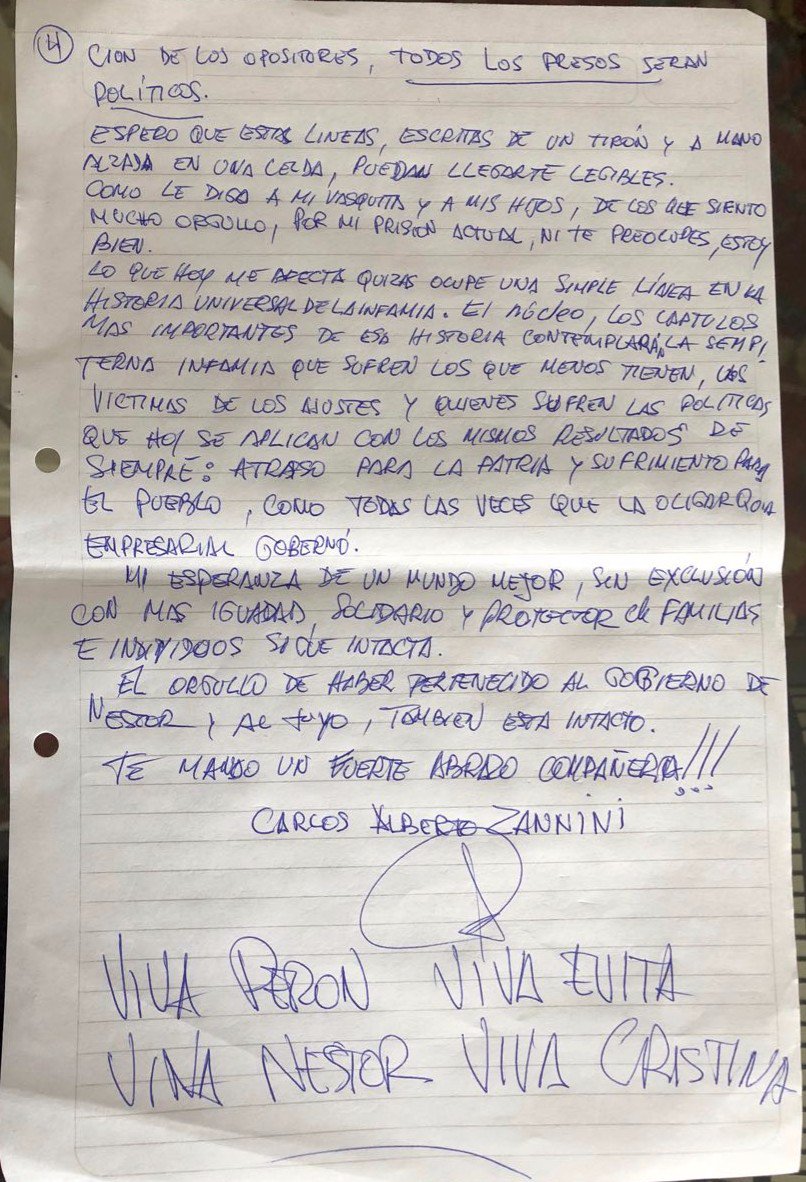 4 CION DE LOS OPOSITORES, TODOS LOS PRESOS SERAN
POLÍTICOS.
ESPERO QUE ESTAS LINEAS, ESCRITAS DE UN TIRÓN Y A MANO
ALZADA EN UNA CELDA, PUEDAN LLEGARTE LEGIBLES.
COMO LE DIGO A MI VASQUITA Y A MIS HIJOS, DE LOS QUE SIENTO
MUCHO ORGULLO, POR MI PRISIÓN ACTUAL, NI TE PREOCUPES, ESTOY
BIEN.
LO QUE HOY ME AFECTA QUIZAS OCUPE UNA SIMPLE LÍNEA EN LA
HISTORIA UNIVERSAL DE LA INFAMIA. El núcleo, LOS CAPTULOS
MAS IMPORTANTES DE ESA HISTORIA CONTEMPLARÁ, LA SEMPI
TERNA INFAMIA QUE SUFREN LOS QUE MENOS TIENEN, LAS
VICTIMAS DE LOS AJUSTES Y QUIENES SUFREN LAS POLITICAS
QUE HOY SE APLICAN CON LOS MISMOS RESULTADOS DE
SIEMPRE: ATRASO PARA LA PATRIA Y SUFRIMIENTO PARA
EL PUEBLO, COMO TODAS LAS VECES QUE LA OLIGARQUIA
EMPRESARIAL GOBERNÓ.
MI ESPERANZA DE UN MUNDO MEJOR, SIN EXCLUSIÓN
CON MAS IGUADAD, SOLIDARIO Y PROTECTOR de FAMILIAS
E INDIVIDUOS SIGUE INTACTA.
EL ORGULLO DE HABER PERTENECIDO AL GOBIERNO DE
NESTOR y AL tuyo, TAMBIEN ESTA INTACTO.
TE MANDO UN FUERTE ABRAZO COMPAÑERA!!!
CARLOS ALBERTO ZANNINI
VIVA PERON VIVA EVITA
VIVA NESTOR VIVA CRISTINA